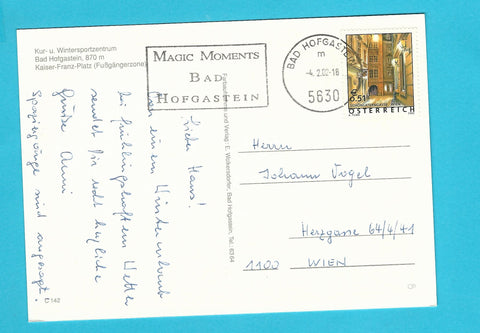 Kur- u. Wintersportzentrum
Bad Hofgastein, 870 m
Kaiser-Franz-Platz (Fußgängerzone)
MAGIC MOMENTS
BAD
HOFGASTEIN
BAD HOFGASTEIN
m
-4.2.02-18
5630
€ 0,51
ÖSTERREICH
Lieber Hans!
Von einem Winterurlaub
bei frühlingshaftem Wetter
sendet Dir recht herzliche
Grüße Anni
Spaziergänge sind angesagt.
C 142
Bad Hofgastein, Tel.: 6364
Herrn
Johann Vogel
Herzgasse 64/4/41
1100 WIEN
CP